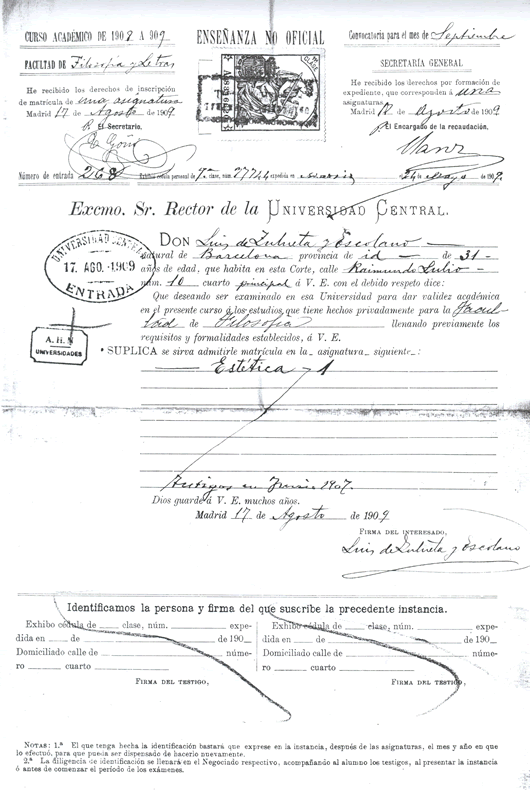 CURSO ACADÉMICO DE 1908 A 909
ENSEÑANZA NO OFICIAL
Convocatoria para el mes de Septiembre
FACULTAD DE Filosofía y Letras
SECRETARÍA GENERAL
He recibido los derechos de inscripción
de matrícula de una asignatura
Madrid 17 de Agosto de 1909
El Secretario,
He recibido los derechos por formación de
expediente, que corresponden á una
asignaturas
Madrid 12 de Agosto de 1909
El Encargado de la recaudación,
Número de entrada 268
Exhibió cédula personal de 7ª clase, núm. 27744 expedida en Madrid 24 Mayo de 1909.
Excmo. Sr. Rector de la UNIVERSIDAD CENTRAL.
UNIVERSIDAD CENTRAL
17. AGO. 1909
ENTRADA
A. H. N
UNIVERSIDADES
DON Luis de Zulueta y Escolano
natural de Barcelona provincia de id de 31
años de edad, que habita en esta Corte, calle Raimundo Lulio
núm. 10 cuarto principal á V. E. con el debido respeto dice:
Que deseando ser examinado en esa Universidad para dar validez académica
en el presente curso á los estudios que tiene hechos privadamente para la Facul
tad de Filosofía llenando previamente los
requisitos y formalidades establecidos, á V. E.
SUPLICA se sirva admitirle matrícula en la asignatura siguiente:
Estética 1
Antigos en Junio 1907.
Dios guarde á V. E. muchos años.
Madrid 17 de Agosto de 1909
FIRMA DEL INTERESADO,
Luis de Zulueta y Escolano
Identificamos la persona y firma del que suscribe la precedente instancia.
Exhibo cédula de clase, núm. expe-
dida en de de 190
Domiciliado calle de núme-
ro cuarto
FIRMA DEL TESTIGO,
Exhibo cédula de clase, núm. expe-
dida en de de 190
Domiciliado calle de núme-
ro cuarto
FIRMA DEL TESTIGO,
NOTAS: 1.ª El que tenga hecha la identificación bastará que exprese en la instancia, después de las asignaturas, el mes y año en que
lo efectuó, para que pueda ser dispensado de hacerlo nuevamente.
2.ª La diligencia de identificación se llenará en el Negociado respectivo, acompañando al alumno los testigos, al presentar la instancia
ó antes de comenzar el período de los exámenes.